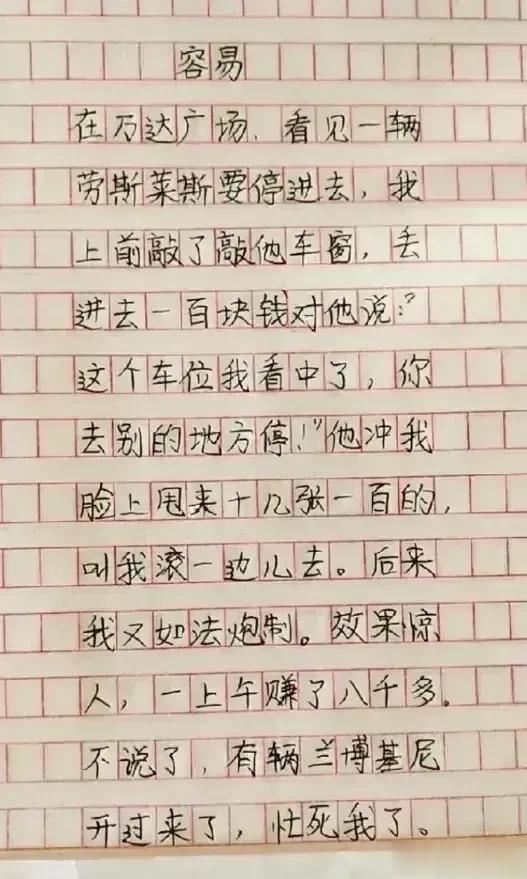 容易
在万达广场、看见一辆
劳斯莱斯要停进去，我
上前敲了敲他车窗，丢
进去一百块钱对他说：“
这个车位我看中了，你
去别的地方停！”他冲我
脸上甩来十几张一百的，
叫我滚一边儿去。后来
我又如法炮制。效果惊
人，一上午赚了八千多。
不说了，有辆兰博基尼
开过来了，忙死我了。